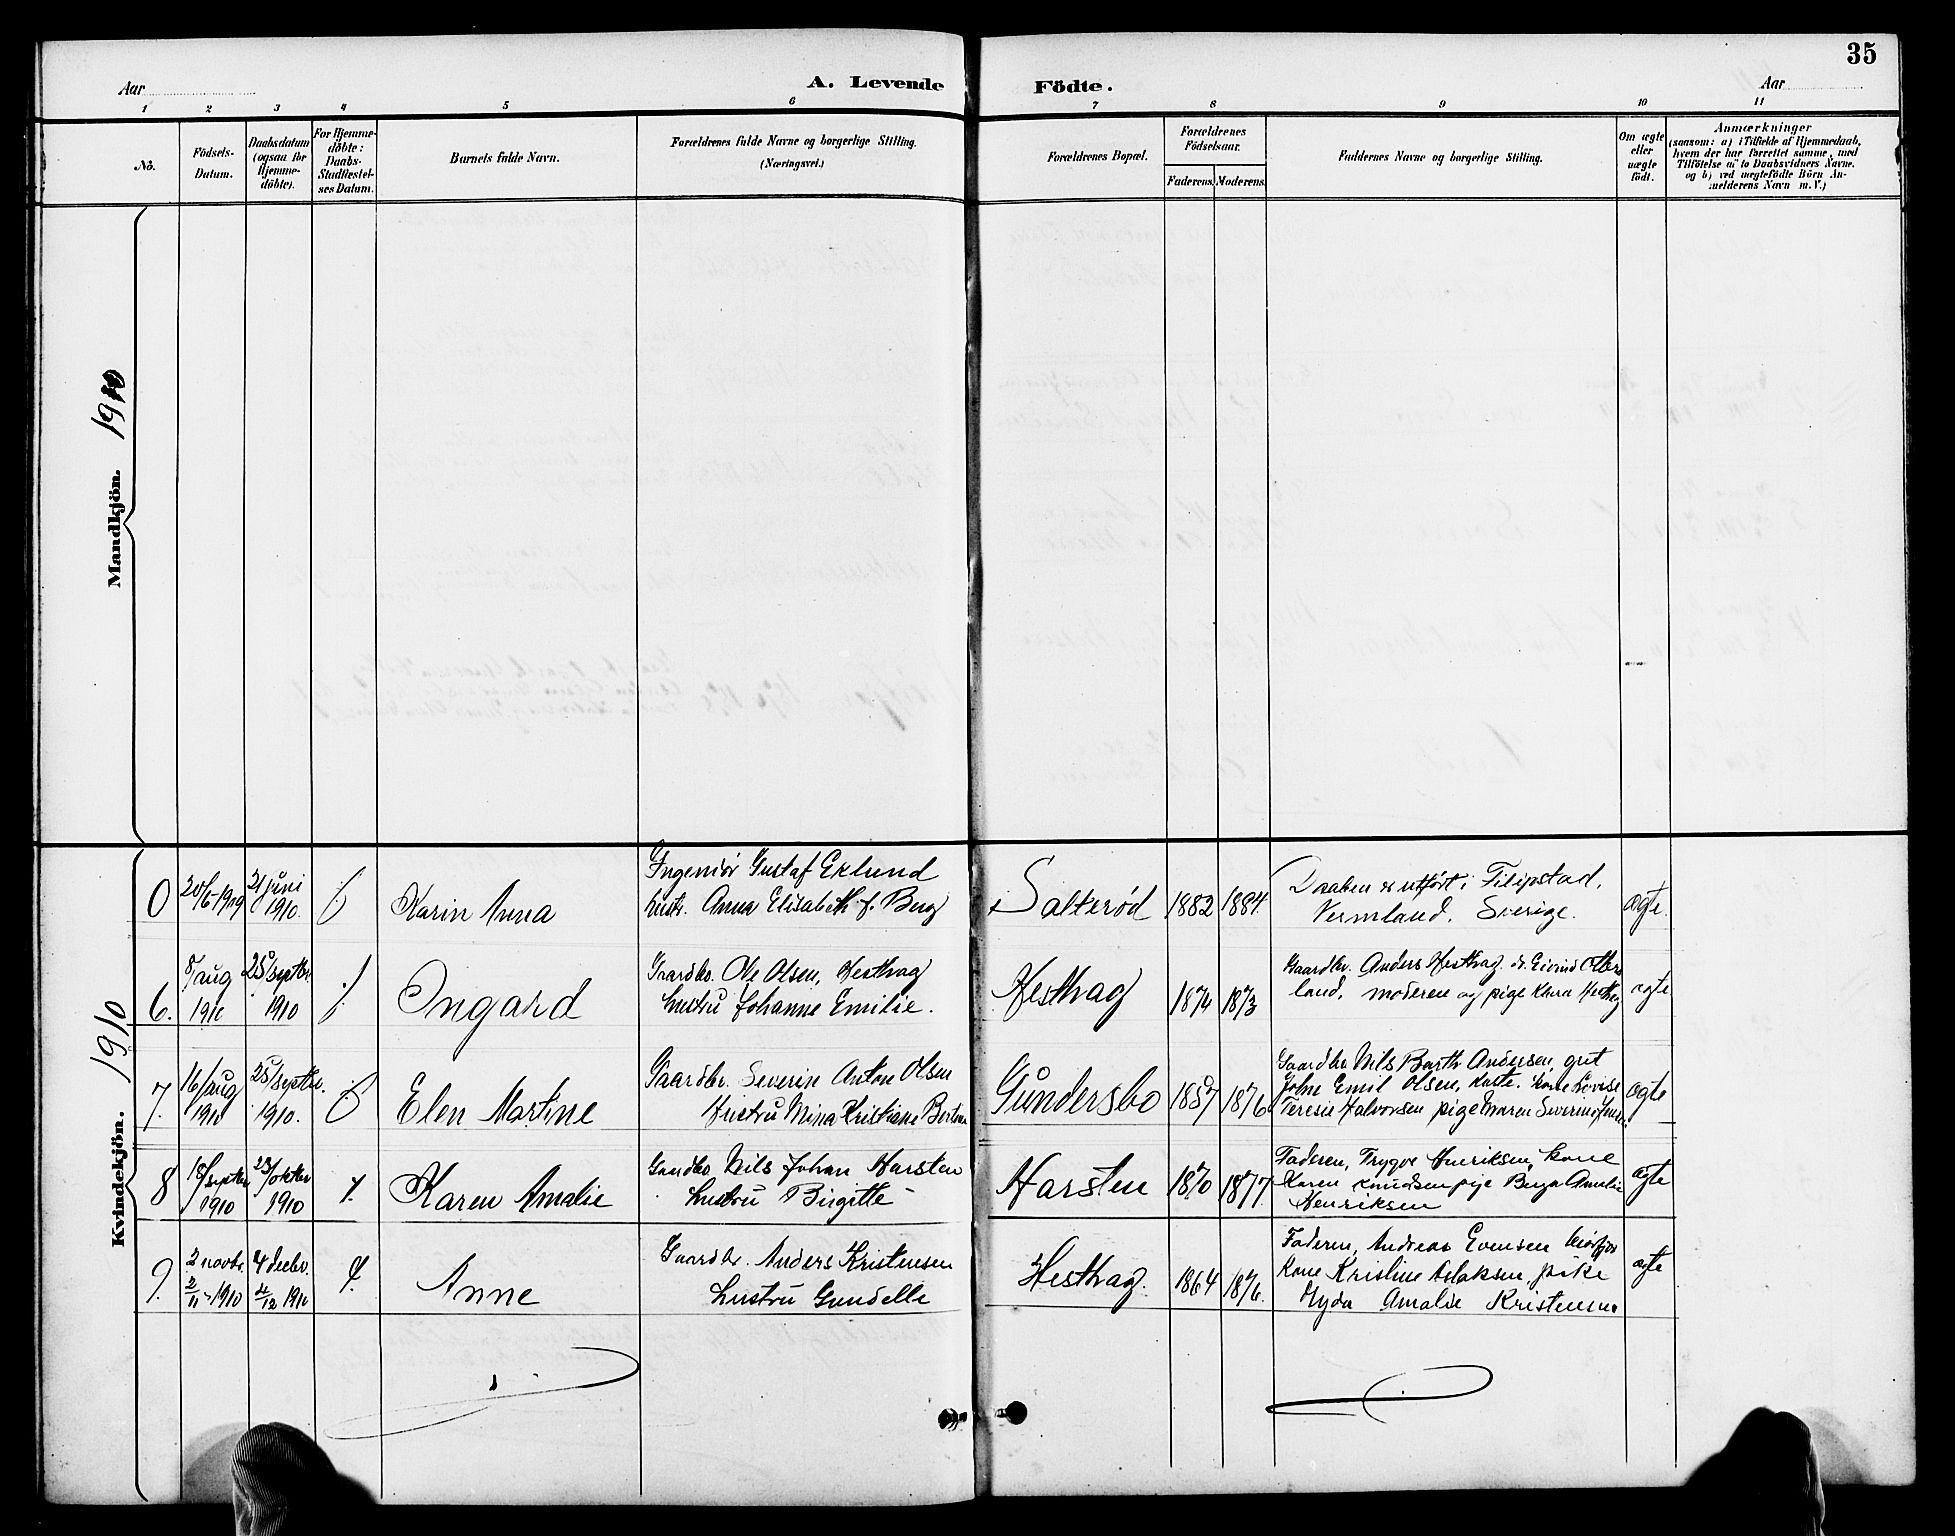 35
Aar
A. Levende
Födte.
Aar
1 2 3 4 5 6 7 8 9 10 11
No.
Födsels-
Datum.
Daabsdatum
(ogsaa for
Hjemme-
döbte).
For Hjemme-
döbte:
Daabs-
Stadfæstel-
ses Datum.
Barnets fulde Navn.
Forældrenes fulde Navne og borgerlige Stilling.
(Næringsvei.)
Forældrenes Bopæl.
Forældrenes
Födselsaar.
Faderens. Moderens.
Faddernes Navne og borgerlige Stilling.
Om ægte
eller
uægte
födt.
Anmærkninger
(saasom: a) i Tilfælde af Hjemmedaab,
hvem der har forrettet samme, med
Tilföielse af to Daabsvidners Navne,
og b) ved uægtefödte Börn An-
melderens Navn m. V.)
Mandkjön. 1910
Kvindekjön. 1910
0 20/6-1909 21 juni 1910. Karin Anna
Ingeniör Gustaf Eklund
hustr. Anna Elisabeth f. Berg
Salteröd 1882 1884
Daaben er utfört i Filipstad,
Vermland, Sverige.
ægte
6. 8/aug 1910 25/septbr. 1910 Ingard
Gaardbr. Ole Olsen, Hesthag
hustru Johanne Emilie.
Hesthag 1874 1873
Gaardbr. Anders Hesthag. Eivind
land, moderen og pige Klara
ægte
7. 16/aug 1910 25/septbr. 1910. Elen Martine
Gaardbr. Severin Anton Olsen
Hustru Mina Kristiane
Gundersbo 1857 1876
Gaardbr. Nils Barth Andersen, gut
Johne Emil Olsen, kone Lovise
Teresie Halvorsen pige Maren
ægte
8 18/septbr 1910 23/oktbr 1910 Karen Amalie
Gaardbr. Nils Johan Harsten
hustru Birgitte
Harsten 1870 1877
Faderen, Trygve Henriksen, kone
Karen Knudsen pige Amalie
Henriksen
ægte
9. 2 novbr. 2/11-1910 4 decbr. 4/12 1910 Anne
Gaardbr. Anders Kristensen
hustru Gunelle
Hesthag. 1864 1876.
Faderen, Andreas Evensen
Kone Kristine Aslaksen, pike
Amalie Kristensen
ægte